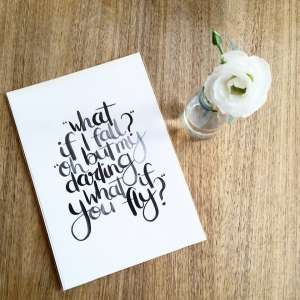 "what
if I fall?"
"oh but my
darling
what if
you fly?"